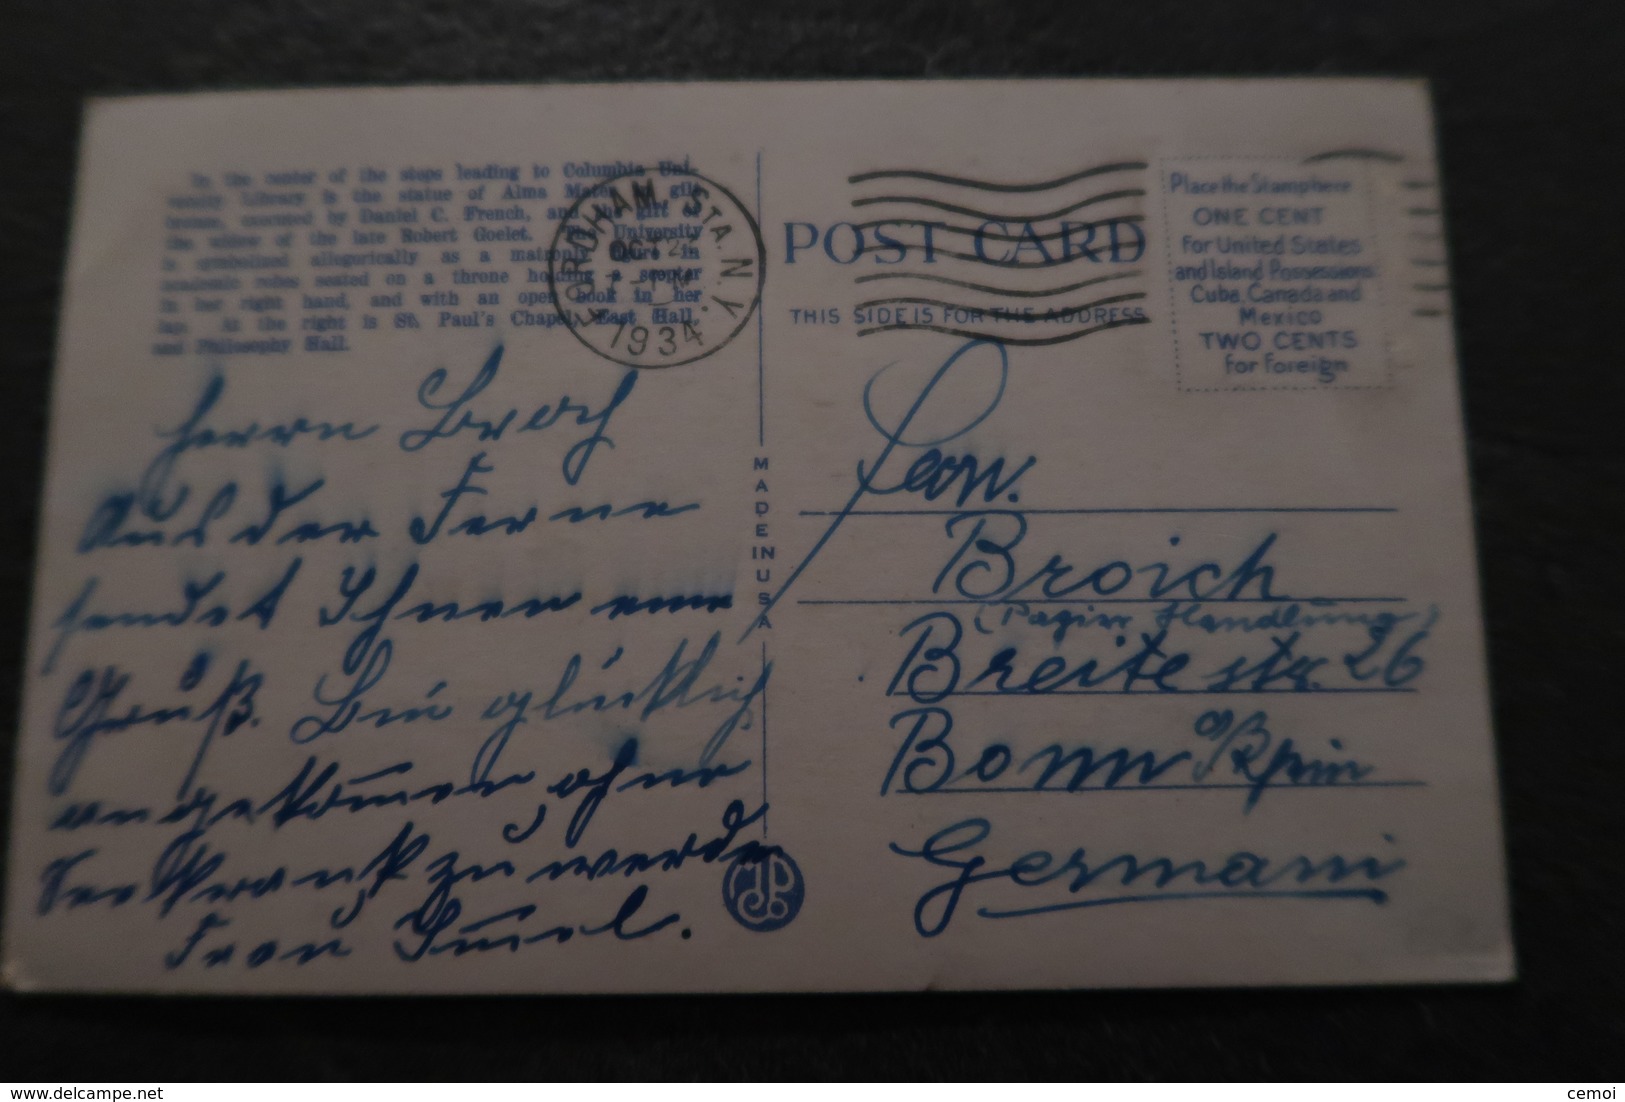 In the center of the steps leading to Columbia Uni-
versity Library is the statue of Alma Mater, gilt
bronze, executed by Daniel C. French, and the gift of
the widow of the late Robert Goelet. The University
is symbolized allegorically as a matronly figure in
academic robes seated on a throne holding a scepter
in her right hand, and with an open book in her
lap. At the right is St. Paul's Chapel, East Hall,
and Philosophy Hall.
FORDHAM STA. N.Y.
OCT 2
1934
POST CARD
THIS SIDE IS FOR THE ADDRESS
Place the Stamp here
ONE CENT
for United States
and Island Possessions
Cuba, Canada and
Mexico
TWO CENTS
for Foreign
MADE IN USA
Herrn Broch
Aus der Ferne
sendet Ihnen eine
Gruß. Bin glücklich
angekommen ohne
Seekrank zu werden
Frau
Broich
(Papier Handlung)
Breite str. 26
Bonn a/Rhein
Germani
cemoi
Delcampe.net